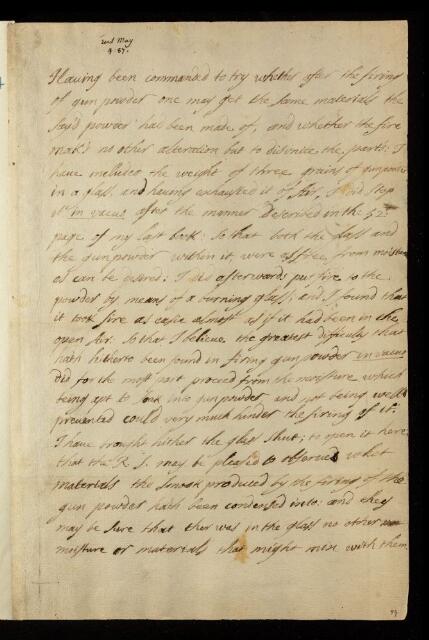 Having been commanded to try whether after the firing
of gun powder one may get the same materials the
sayd powder had been made of, and whether the fire
mak's no other alteration but to disunite the parts: I
have inclused the weight of three grains of gunpowder
in a glass, and having exhausted it of Air, I did stop
it in vacuo after the manner Described in the 52
page of my last book: so that both the glass and
the gunpowder within it, were as free from moisture
as can be desired: I did afterwards put fire to the
powder by means of a burning glass; and I found that
it took fire as easie almost as if it had been in the
open Air: so that I believe the greatest difficulty that
hath hitherto been found in firing gunpowder in vacuo
did for the most part proceed from the moisture which
being apt to soak into gunpowder, and not being well
prevented could very much hinder the firing of it.
I have brought hither the glass shut; to open it here
that the R. S. may be pleased to observe what
materials the smoak produced by the firing of the
gun powder hath been condensed into: and they
may be sure that ther was in the glass no other
moisture or materials that might mix with them.